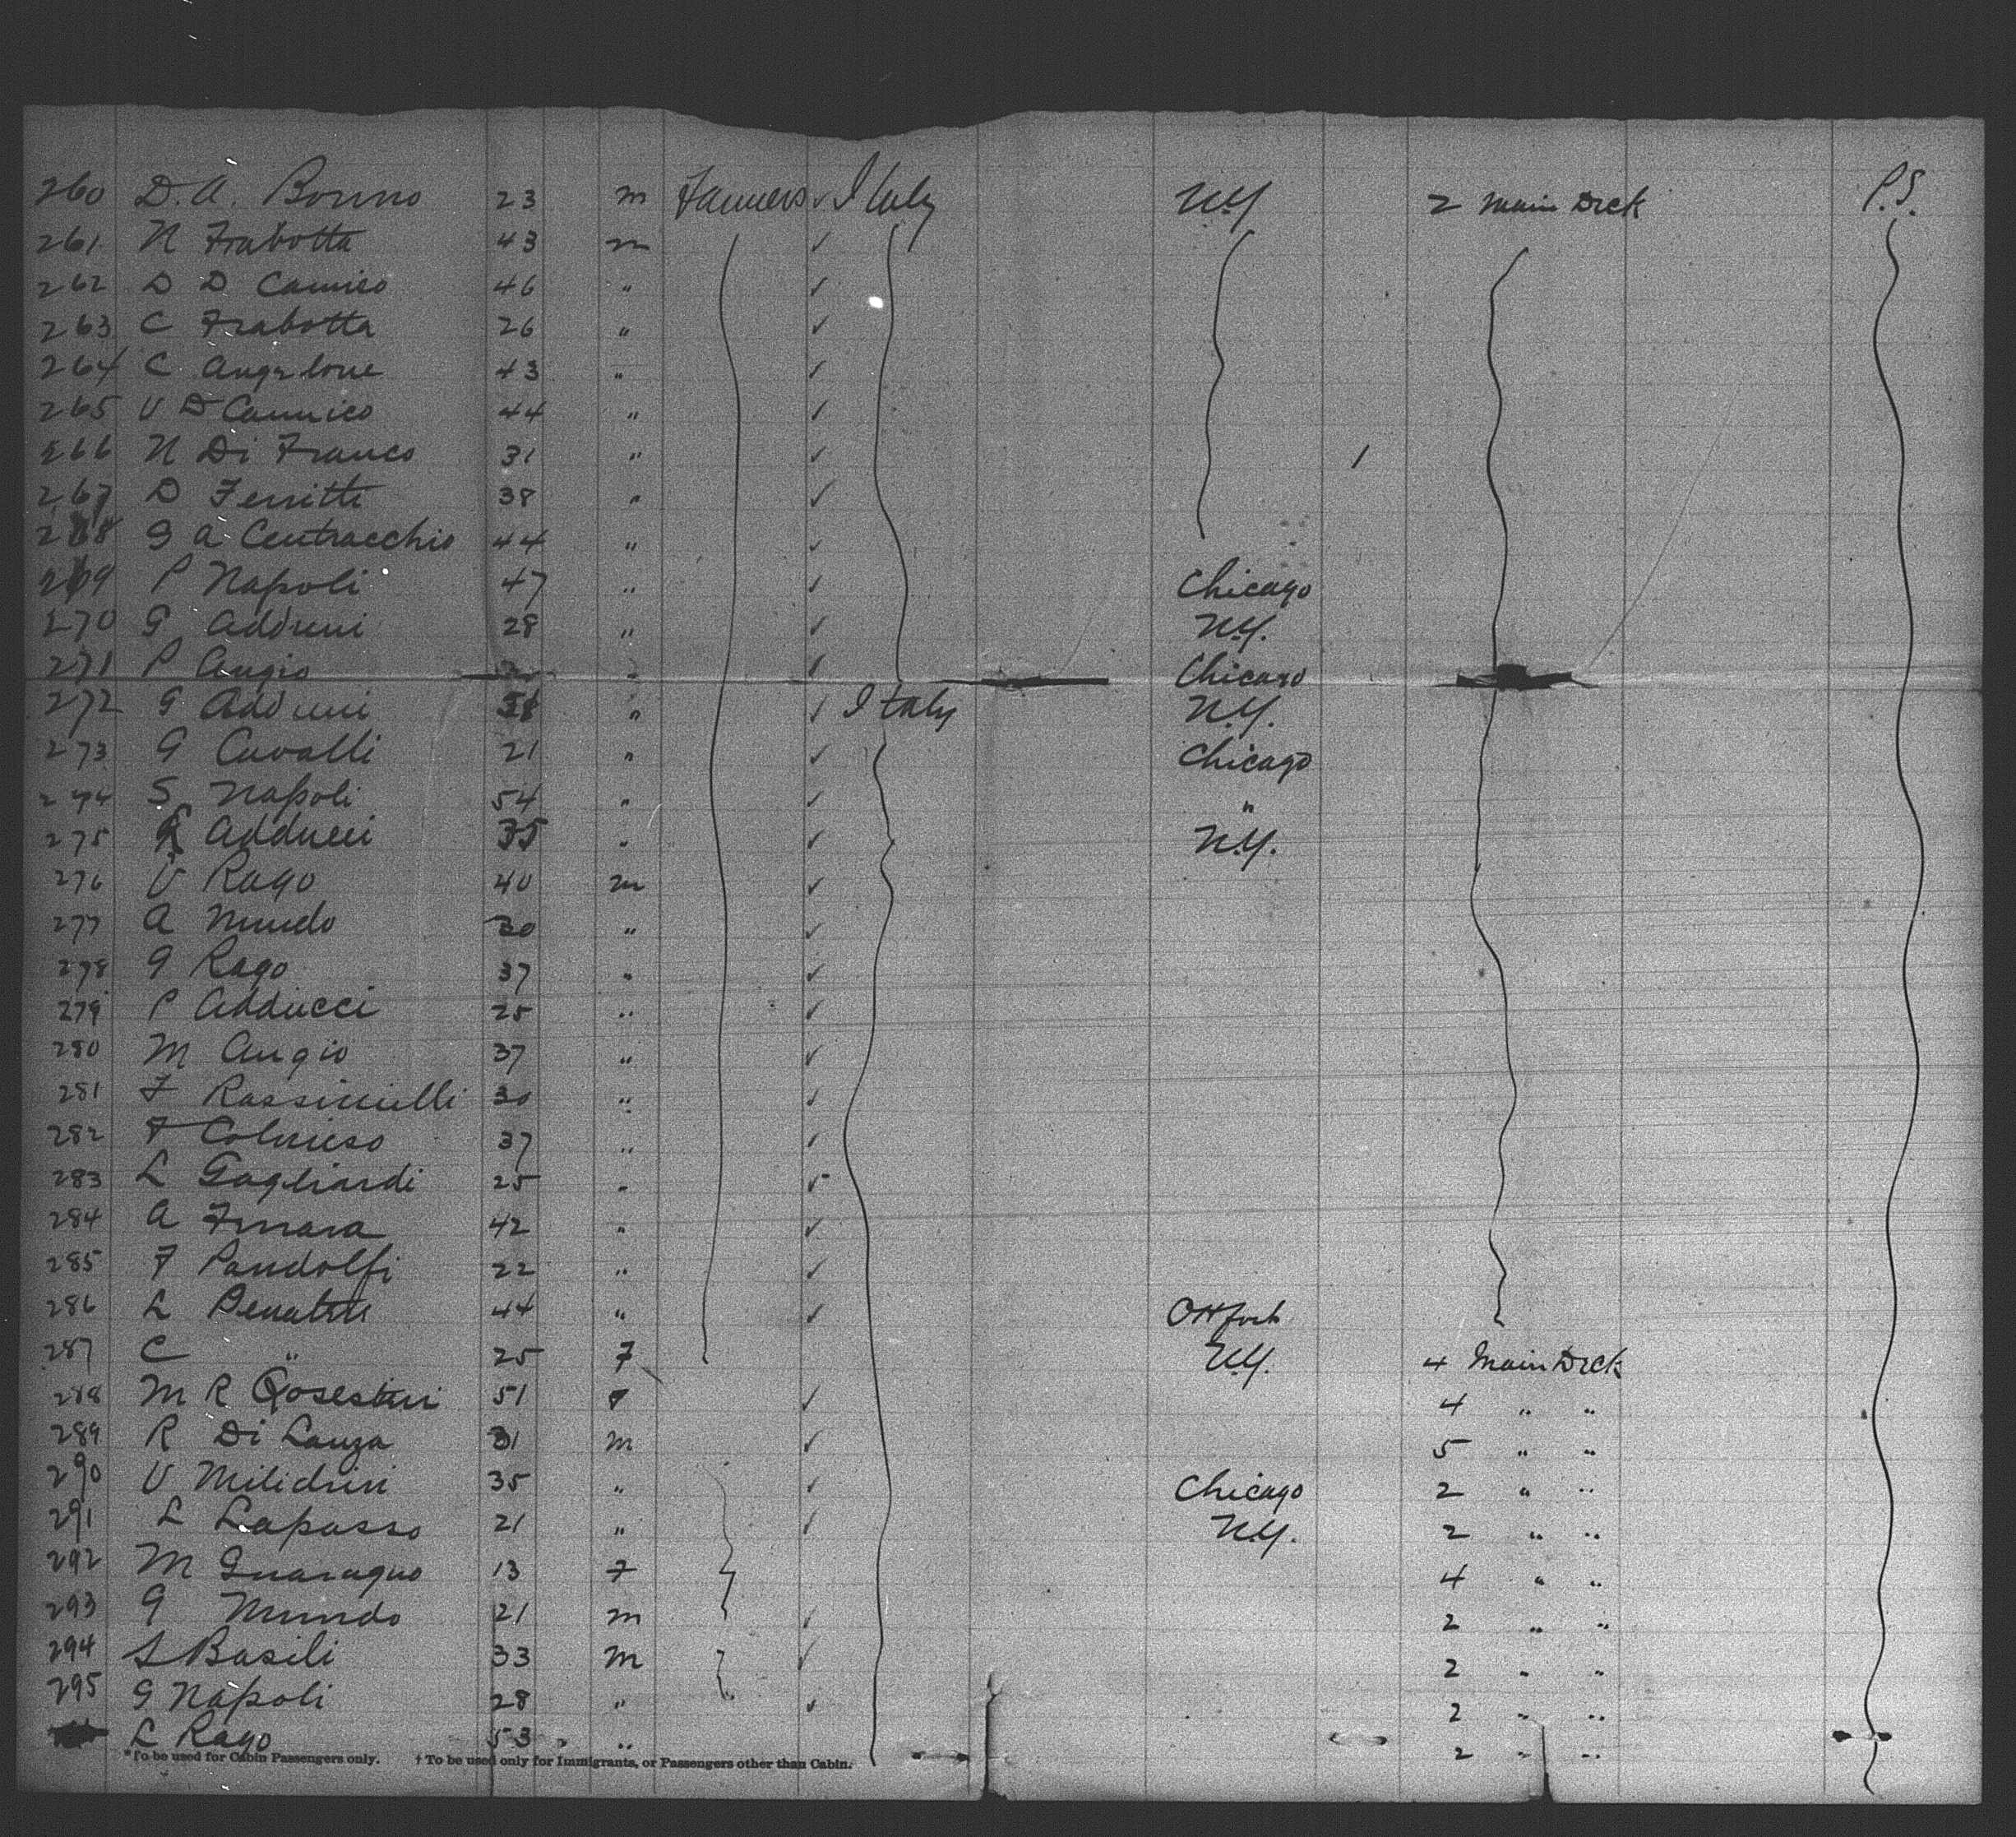 260 D. A. Bonno 23 m Farmers ✓ Italy N.Y. 2 Main Deck P.S.
261 N Frabotta 43 m ✓
262 D D Camico 46 " ✓
263 C Frabotta 26 " ✓
264 C Angelone 43 " ✓
265 V D Camico 44 " ✓
266 N Di Franco 31 " ✓ /
267 D Ferritti 38 " ✓
268 G A Centracchio 44 " ✓
269 P Napoli 47 " ✓ Chicago
270 G 28 " ✓ N.Y.
271 P Angio " ✓ Chicago
272 G " ✓ Italy N.Y.
273 G Cavalli 21 " ✓ Chicago
274 S Napoli 54 " ✓ "
275 Adducci 35 " ✓ N.Y.
276 V Rago 40 m ✓
277 A Mundo 30 " ✓
278 G Rago 37 " ✓
279 P Adducci 25 " ✓
280 M Angio 37 " ✓
281 F 30 " ✓
282 F 37 " ✓
283 L Gagliardi 25 " ✓
284 A 42 " ✓
285 F Pandolfi 22 " ✓
286 L 44 " ✓
287 C " 25 F N.Y. 4 Main Deck
288 M R 51 F ✓ 4 " "
289 R Di Lanza 31 m ✓ 5 " "
290 V 35 " ✓ Chicago 2 " "
291 L Lapasso 21 " ✓ N.Y. 2 " "
292 M Guaragno 13 F 4 " "
293 G Mundo 21 m ✓ 2 " "
294 S Basili 33 m ✓ 2 " "
295 G Napoli 28 " ✓ 2 " "
L Rago 53 " 2 " "
*To be used for Cabin Passengers only. † To be used only for Immigrants, or Passengers other than Cabin.